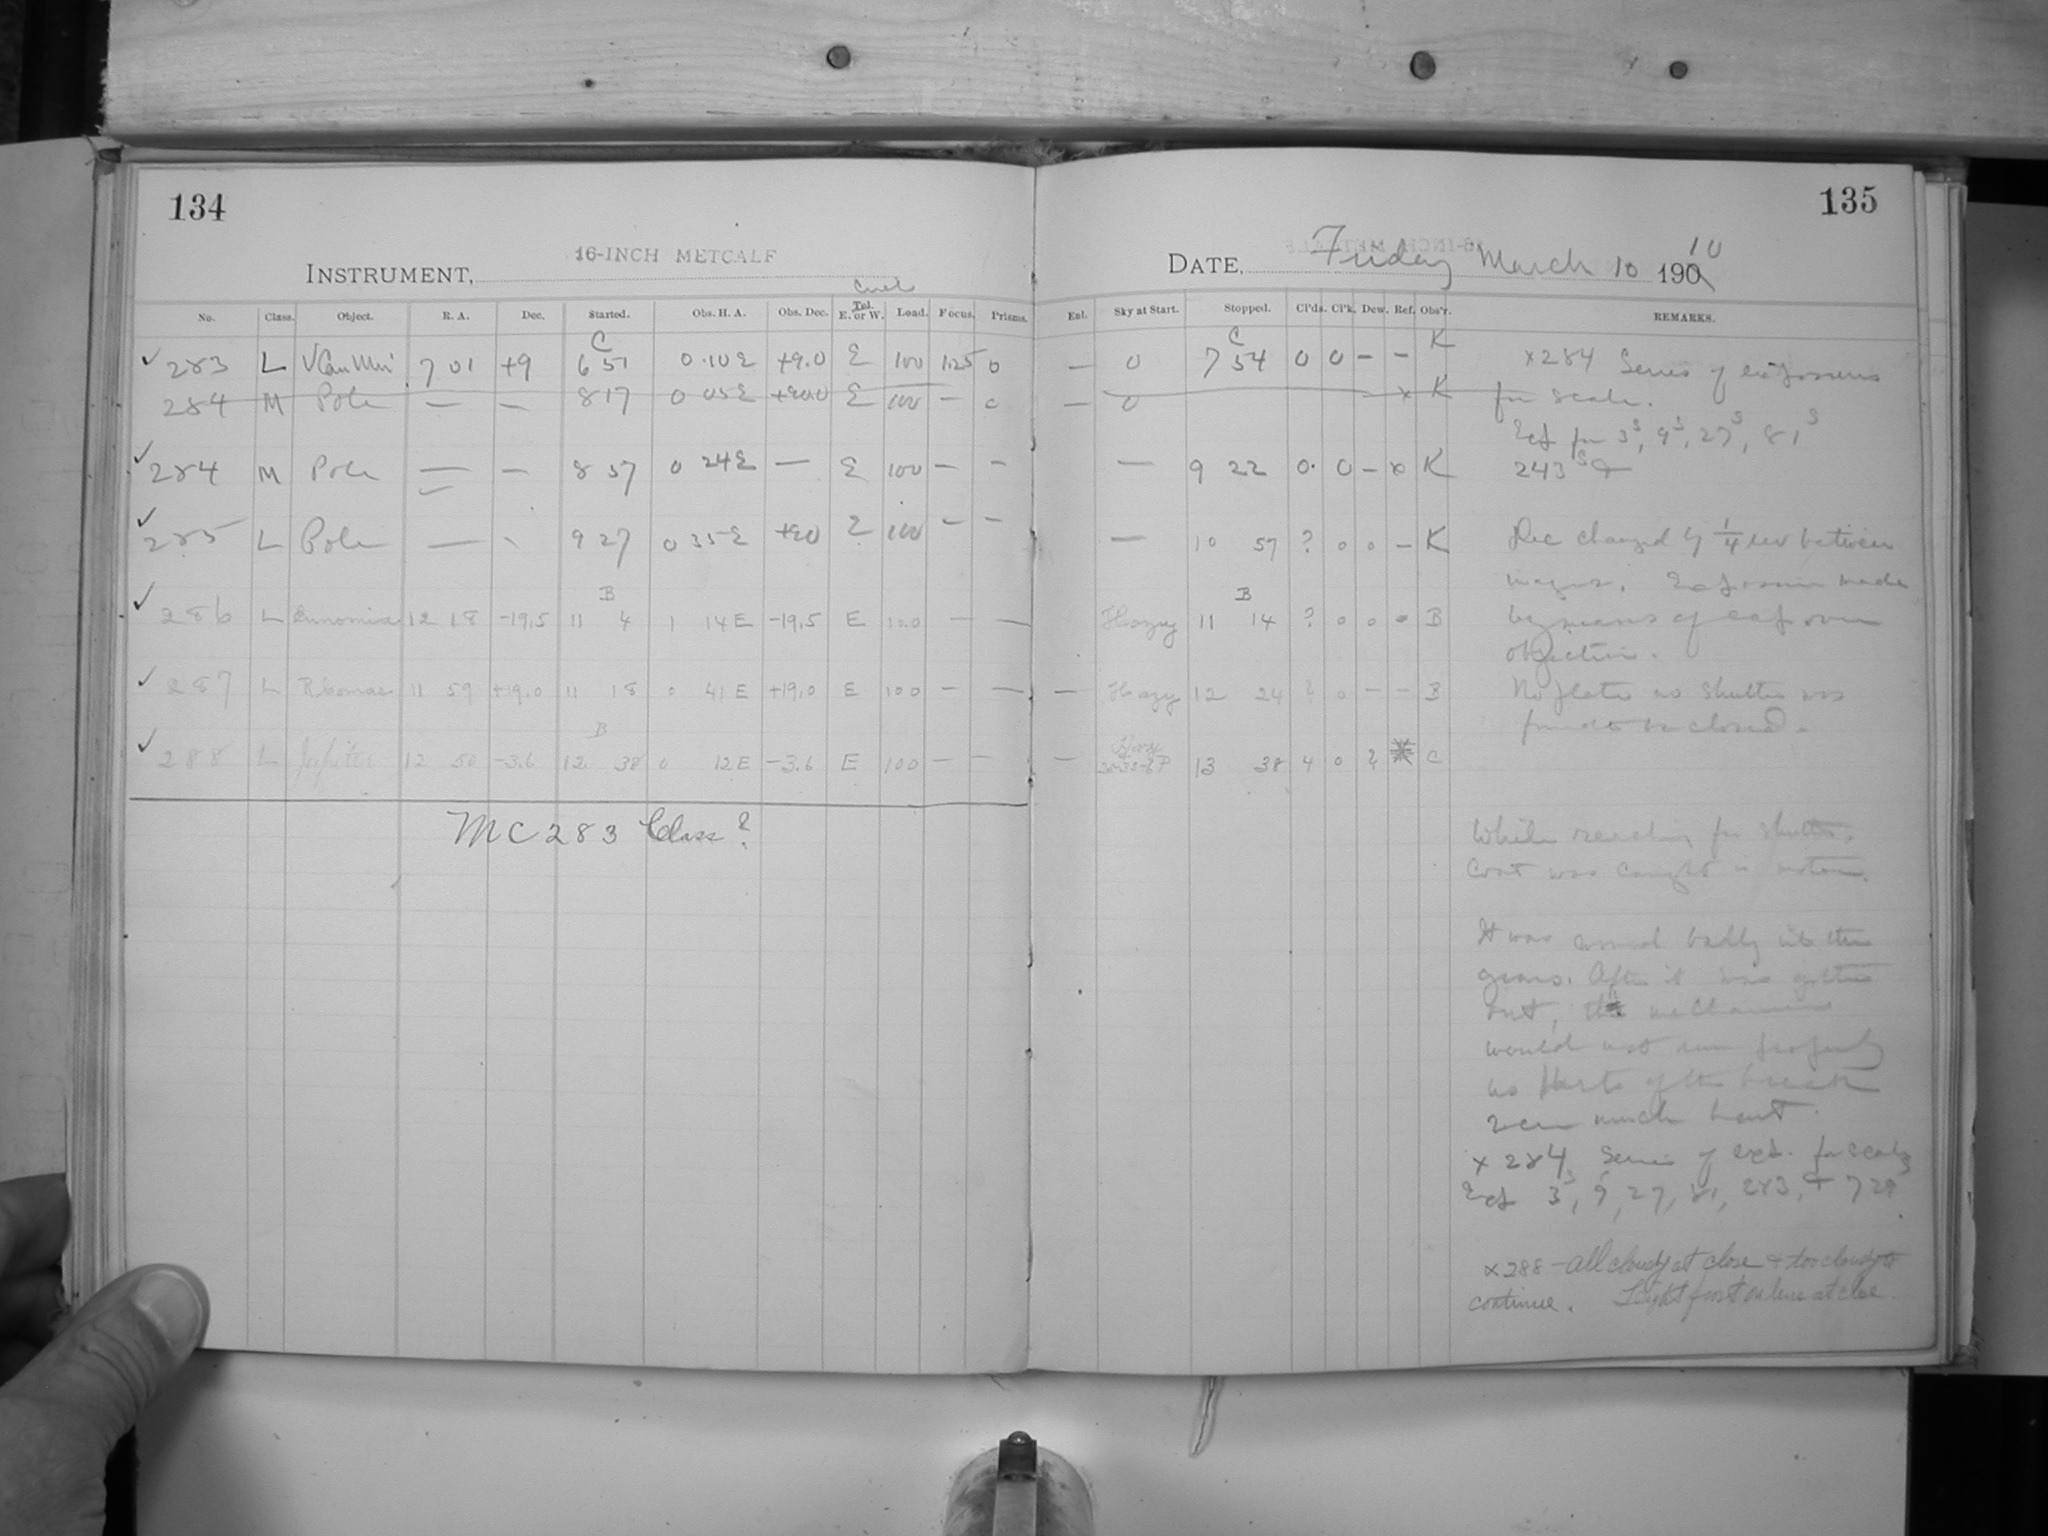 134
16-INCH METCALF
INSTRUMENT,
No. Class. Object. R. A. Dec. Started. Obs. H. A. Obs. Dec. Tel. E. or W. Load. Focus. Prisms.
C
✓ 283 L V Can Min 7 01 +9 6 51 0 10 E +9.0 E 100 1.25 0
284 M Pole — — 8 17 0 05 E +90.0 E 100 — 0
✓ 284 M Pole — — 8 57 0 24 E — E 100 — —
✓ 285 L Pole — 9 27 0 35 E +90 E 100 — —
B
✓ 286 L Eunomia 12 18 -19.5 11 4 1 14 E -19.5 E 100 — —
✓ 287 L R Comae 11 59 +19.0 11 18 0 41 E +19.0 E 100 — —
B
✓ 288 L Jupiter 12 50 -3.6 12 38 0 12 E -3.6 E 100 — —
MC 283 Class?
135
DATE, Friday March 10 190 10
Enl. Sky at Start. Stopped. Cl'ds. Cl'k. Dew. Ref. Obs'r. REMARKS.
C
— 0 7 54 0 0 — — K
— 0 — x K
— 9 22 0 0 — x K
— 10 57 ? 0 0 — K
B
Hazy 11 14 ? 0 0 B
— Hazy 12 24 ? 0 — — B
— Hazy 13 38 4 0 ? C
x 284 Series of exposures
for scale.
Exp for 3s, 9s, 27s, 81s
243s
Dec changed by 1/4 rev between
images. Exposures made
by means of cap over
objective.
No plate as shutter was
found to be closed.
While reaching for shutter,
coat was caught in motor.
It was wound badly into the
gears. After it was gotten
out, the mechanism
would not run properly
as parts of the
were much bent.
x 284 Series of exp. for scale
Exp 3s, 9, 27, 81, 243, + 729
x 288 — all cloudy at close + too cloudy to
continue. Light frost on lens at close.